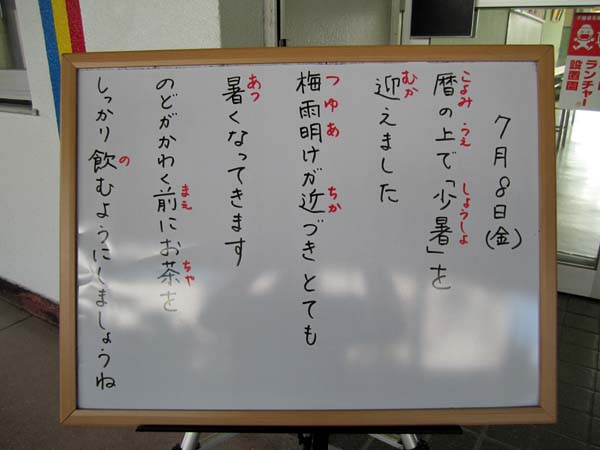 7月8日(金)
暦の上で「少暑」を
こよみ うえ しょうしょ
迎えました
むか
梅雨明けが近づきとても
つゆあ ちか
暑くなってきます
あつ
のどがかわく前にお茶を
まえ ちゃ
しっかり飲むようにしましょうね
の
ランチャー
設置園